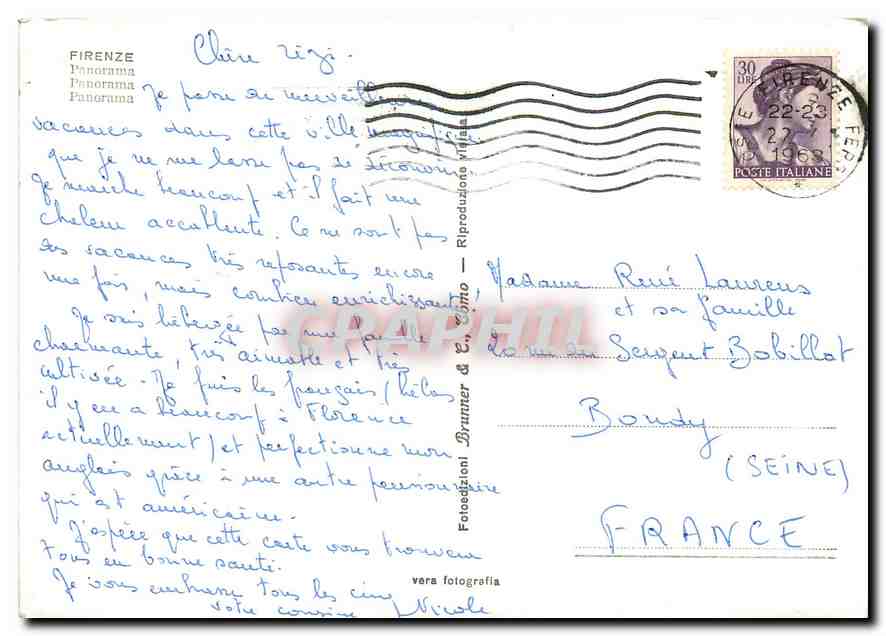 FIRENZE
Panorama
Panorama
Panorama
Chère Régi.
Je passe de merveilleuses
vacances dans cette ville magnifique
que je ne me lasse pas de découvrir
Je marche beaucoup et il fait une
chaleur accablante. Ce ne sont pas
des vacances très reposantes encore
une fois, mais combien enrichissantes!
Je suis hébergée par une famille
charmante, très aimable et très
cultivée. Je fuis les français (hélas
il y en a beaucoup à Florence
actuellement) et perfectionne mon
anglais grâce à une autre pensionnaire
qui est américaine.
J'espère que cette carte vous trouvera
tous en bonne santé.
Je vous embrasse tous les cinq
votre cousine Nicole
Fotoedizioni Brunner & C., Como — Riproduzione vietata
vera fotografia
30
LIRE
POSTE ITALIANE
FIRENZE FERR
22-23
1963
Madame René Laurens
et sa famille
20 rue du Sergent Bobillot
Bondy
(SEINE)
FRANCE
CPAPHIL